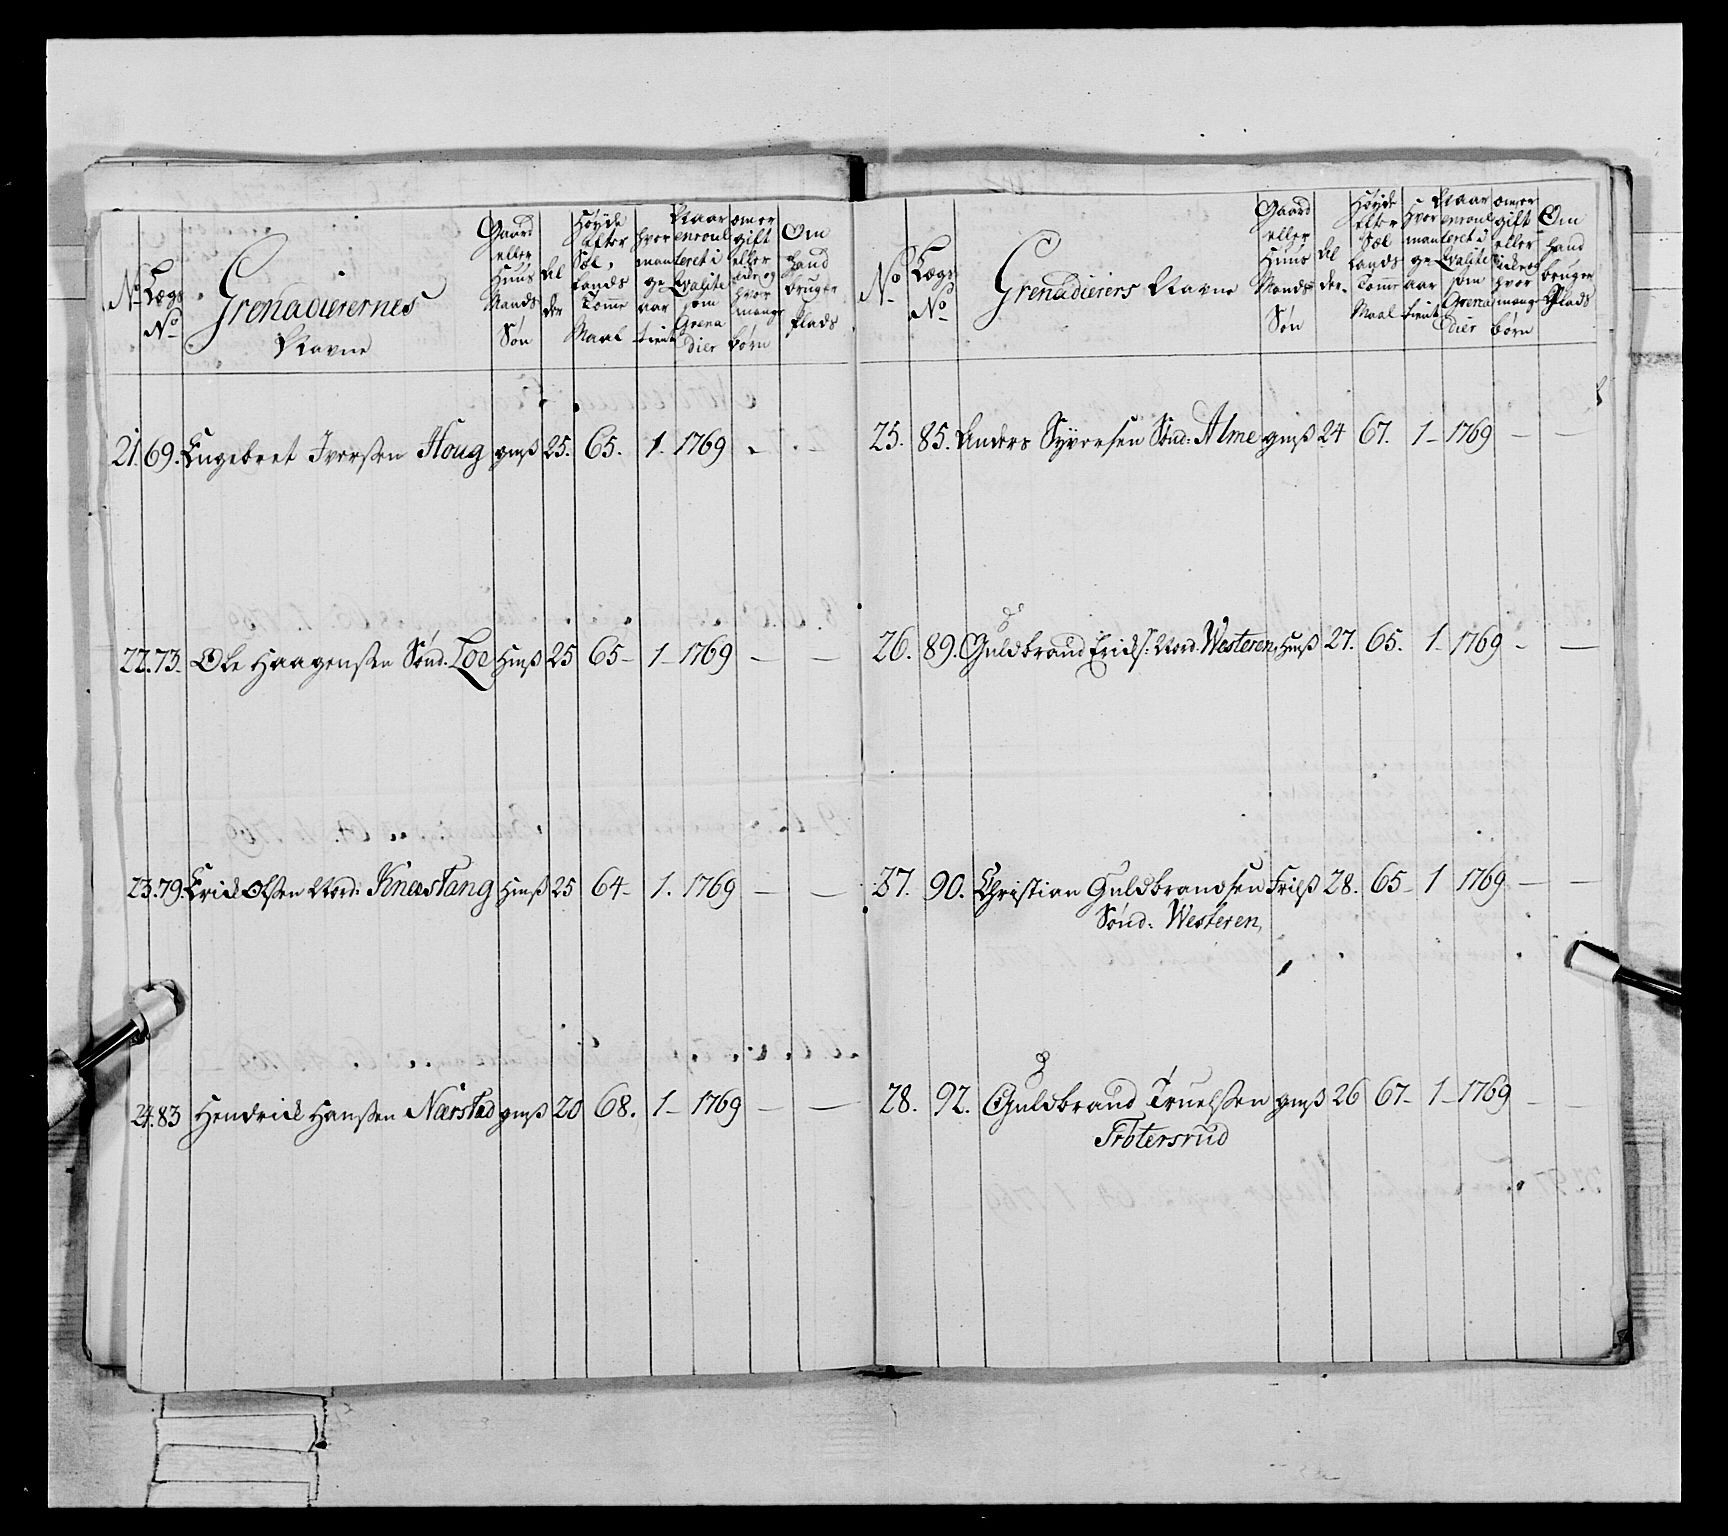 No
Lægs No
Grenadierernes
Navne
Gaard eller Huus Mands Søn
Al der
Høyde efter Sæl. Lands Tomme Maal
hvor mange aar tient
Naar enroul eret i qvalite som Grena dier
om er gift eller ei og hvor mange børn
Om hand bruger Plads
21. 69. Engebret Iversen Houg gmß 25. 65. 1. 1769
22. 73. Ole Haagensen Sönd. Loe Hmß 25 65 – 1 – 1769 — —
23. 79. Erick Olsen Nord: Knæstang Hmß 25 64 – 1. 1769 — —
24. 83 Hendrick Hansen Nærstad gmß 20 68. 1 – 1769 — —
No
Lægs No
Grenadierers Navne
Gaard eller Huus Mands Søn
Al der.
Høyde efter Sæl Lands Tomme Maal
hvor mange aar tient
Naar enroul eret i qvalite som Grena dier
om er gift eller ei og hvor mange børn
Om hand bruger Plads
25. 85. Anders Syversen Sönd: Alme gmß 24 67. 1 – 1769 — —
26. 89. Guldbrand Ericks. Nord. Westeren Hmß 27. 65. 1 – 1769 – —
27. 90. Christian Guldbrandsen Frilß 28. 65 – 1 1769 — —
Sönd: Westeren,
28. 92. Guldbrand Truelsen gmß 26 67 – 1 – 1769 — —
Trotersrud